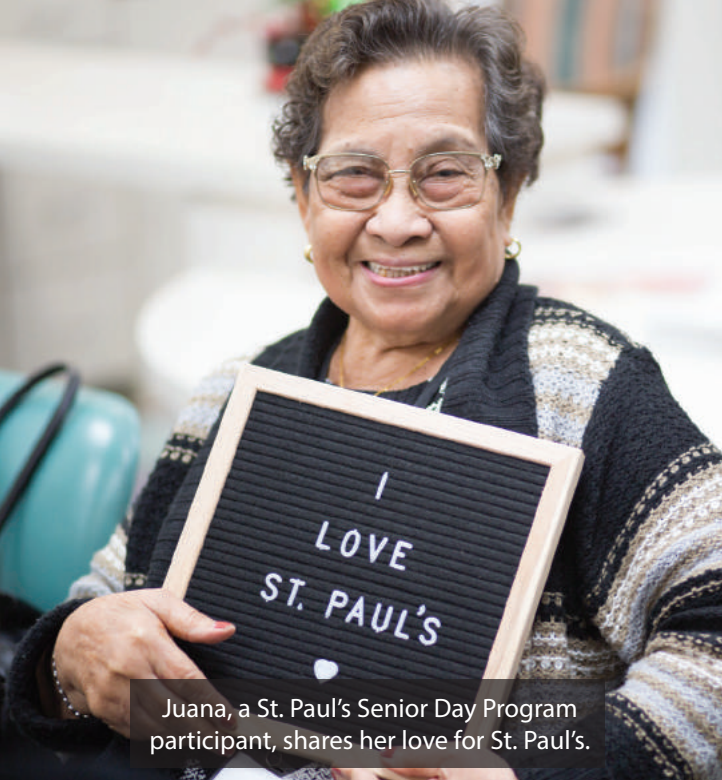 I
LOVE
ST. PAUL'S
Juana, a St. Paul's Senior Day Program
participant, shares her love for St. Paul's.